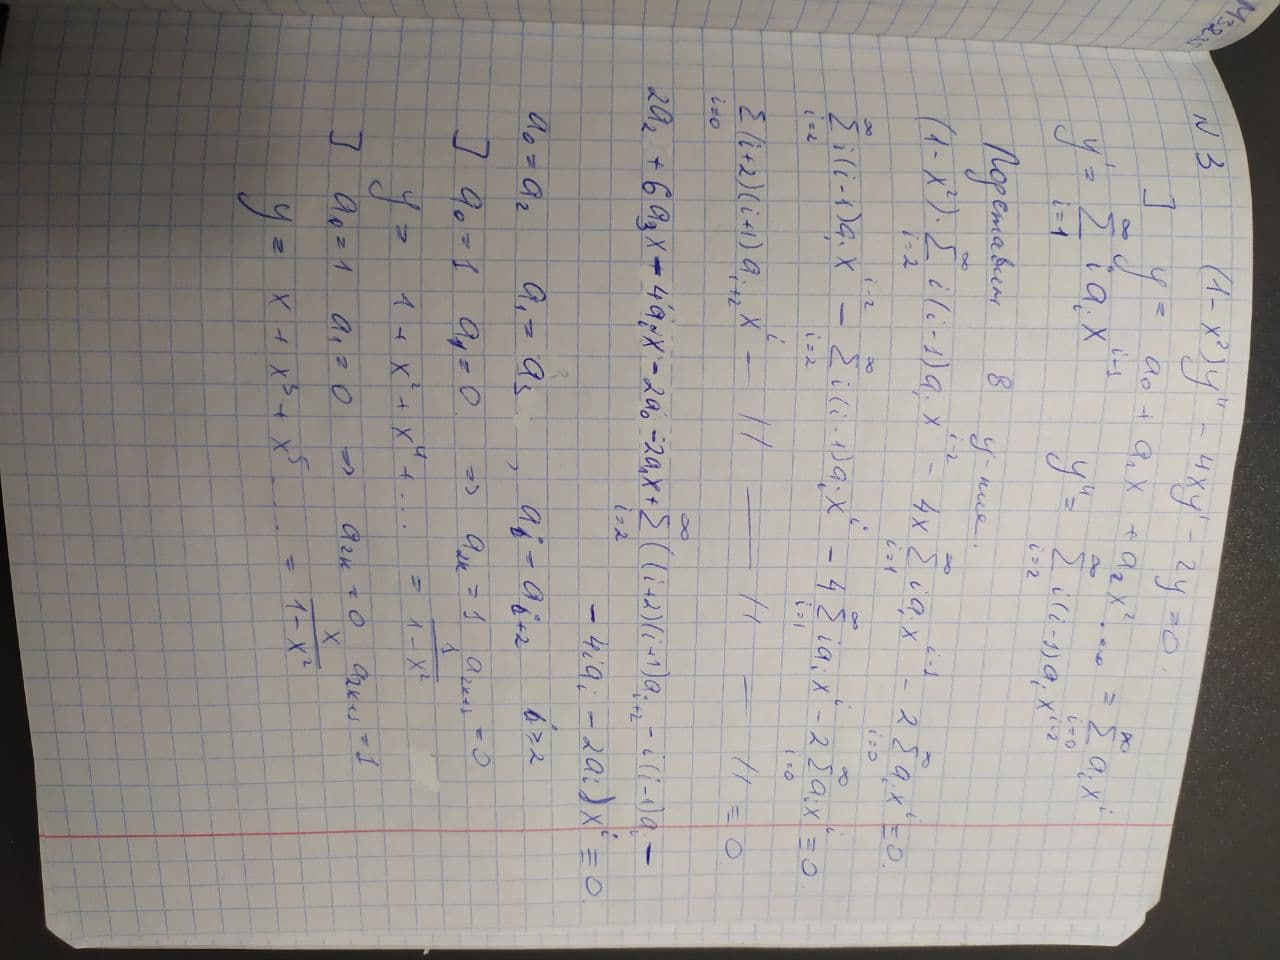 М3235
N 3 (1-x²)y'' - 4xy' - 2y = 0.
] y = a₀ + a₁x + a₂x² ... = ∑_{i=0}^{∞} aᵢxⁱ
y' = ∑_{i=1}^{∞} i aᵢ x^{i-1} y'' = ∑_{i=2}^{∞} i(i-1)aᵢ x^{i-2}
Подставим в у-ние.
(1-x²)·∑_{i=2}^{∞} i(i-1)aᵢ x^{i-2} - 4x ∑_{i=1}^{∞} i aᵢ x^{i-1} - 2 ∑_{i=0}^{∞} aᵢ xⁱ ≡ 0.
∑_{i=2}^{∞} i(i-1)aᵢ x^{i-2} - ∑_{i=2}^{∞} i(i-1)aᵢ xⁱ - 4 ∑_{i=1}^{∞} i aᵢ xⁱ - 2 ∑_{i=0}^{∞} aᵢ xⁱ ≡ 0.
∑_{i=0} (i+2)(i+1) a_{i+2} xⁱ - // — // — // ≡ 0
2a₂ + 6a₃x - 4a₁x - 2a₀ - 2a₁x + ∑_{i=2}^{∞} ((i+2)(i+1)a_{i+2} - i(i-1)aᵢ -
- 4iaᵢ - 2aᵢ) xⁱ ≡ 0.
a₀ = a₂ a₁ = a₃ , aᵢ = a_{i+2} i ≥ 2
] a₀ = 1 a₁ = 0 => a_{2k} = 1 a_{2k+1} = 0
y = 1 + x² + x⁴ + ... = 1/(1-x²)
] a₀ = 1 a₁ = 0 => a_{2k} = 0 a_{2k+1} = 1
y = x + x³ + x⁵ .... = x/(1-x²)